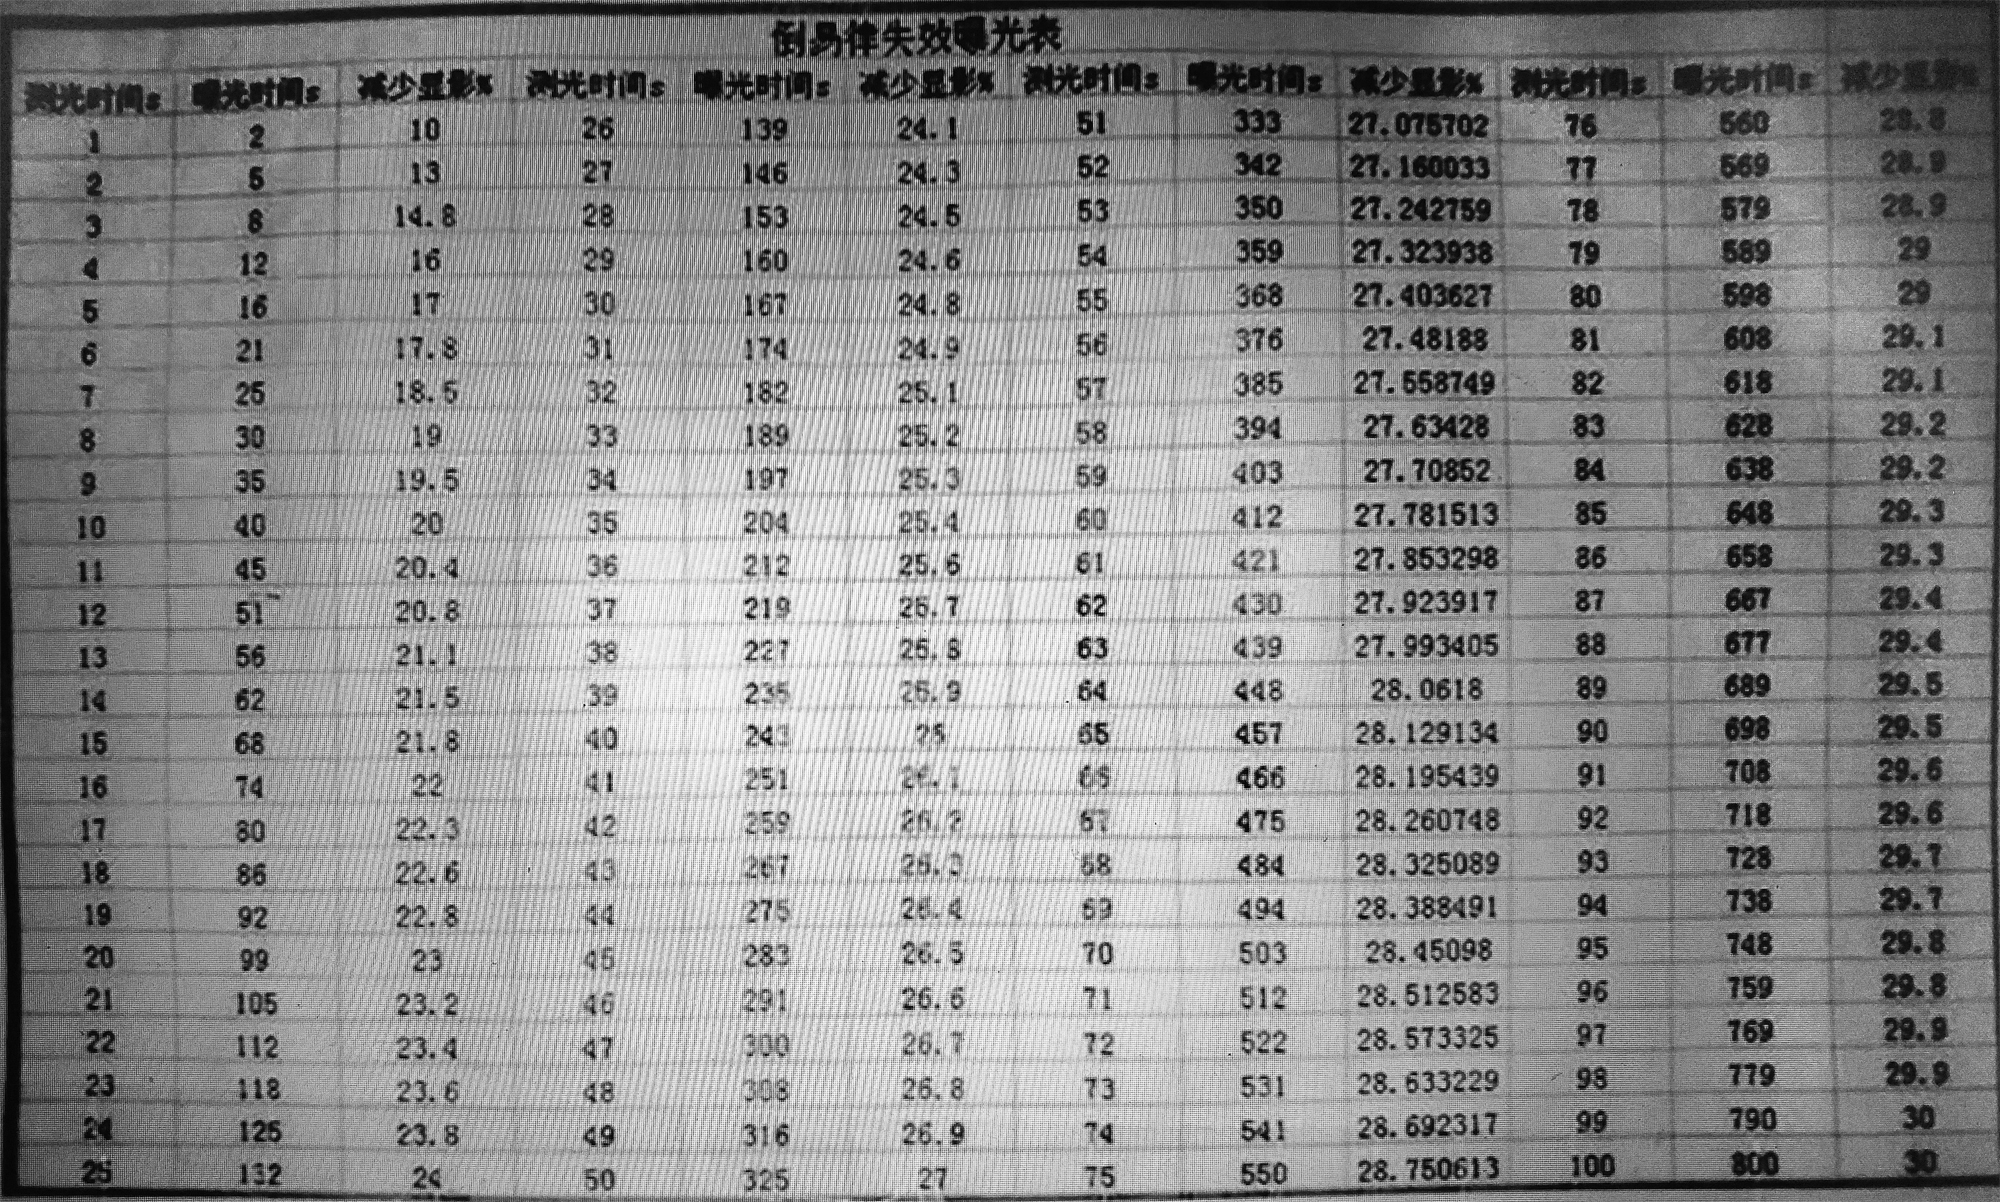 倒易律失效曝光表
测光时间s 曝光时间s 减少显影% 测光时间s 曝光时间s 减少显影% 测光时间s 曝光时间s 减少显影% 测光时间s 曝光时间s 减少显影%
1 2 10 26 139 24.1 51 333 27.075702 76 560 28.8
2 5 13 27 146 24.3 52 342 27.160033 77 569 28.9
3 8 14.8 28 153 24.5 53 350 27.242759 78 579 28.9
4 12 16 29 160 24.6 54 359 27.323938 79 589 29
5 16 17 30 167 24.8 55 368 27.403627 80 598 29
6 21 17.8 31 174 24.9 56 376 27.48188 81 608 29.1
7 25 18.5 32 182 25.1 57 385 27.558749 82 618 29.1
8 30 19 33 189 25.2 58 394 27.63428 83 628 29.2
9 35 19.5 34 197 25.3 59 403 27.70852 84 638 29.2
10 40 20 35 204 25.4 60 412 27.781513 85 648 29.3
11 45 20.4 36 212 25.6 61 421 27.853298 86 658 29.3
12 51 20.8 37 219 25.7 62 430 27.923917 87 667 29.4
13 56 21.1 38 227 25.8 63 439 27.993405 88 677 29.4
14 62 21.5 39 235 25.9 64 448 28.0618 89 689 29.5
15 68 21.8 40 243 65 457 28.129134 90 698 29.5
16 74 22 41 251 26.1 66 466 28.195439 91 708 29.6
17 80 22.3 42 259 26.2 67 475 28.260748 92 718 29.6
18 86 22.6 43 267 26.3 68 484 28.325089 93 728 29.7
19 92 22.8 44 275 26.4 69 494 28.388491 94 738 29.7
20 99 23 45 283 26.5 70 503 28.45098 95 748 29.8
21 105 23.2 46 291 26.6 71 512 28.512583 96 759 29.8
22 112 23.4 47 300 26.7 72 522 28.573325 97 769 29.9
23 118 23.6 48 308 26.8 73 531 28.633229 98 779 29.9
24 125 23.8 49 316 26.9 74 541 28.692317 99 790 30
25 132 24 50 325 27 75 550 28.750613 100 800 30